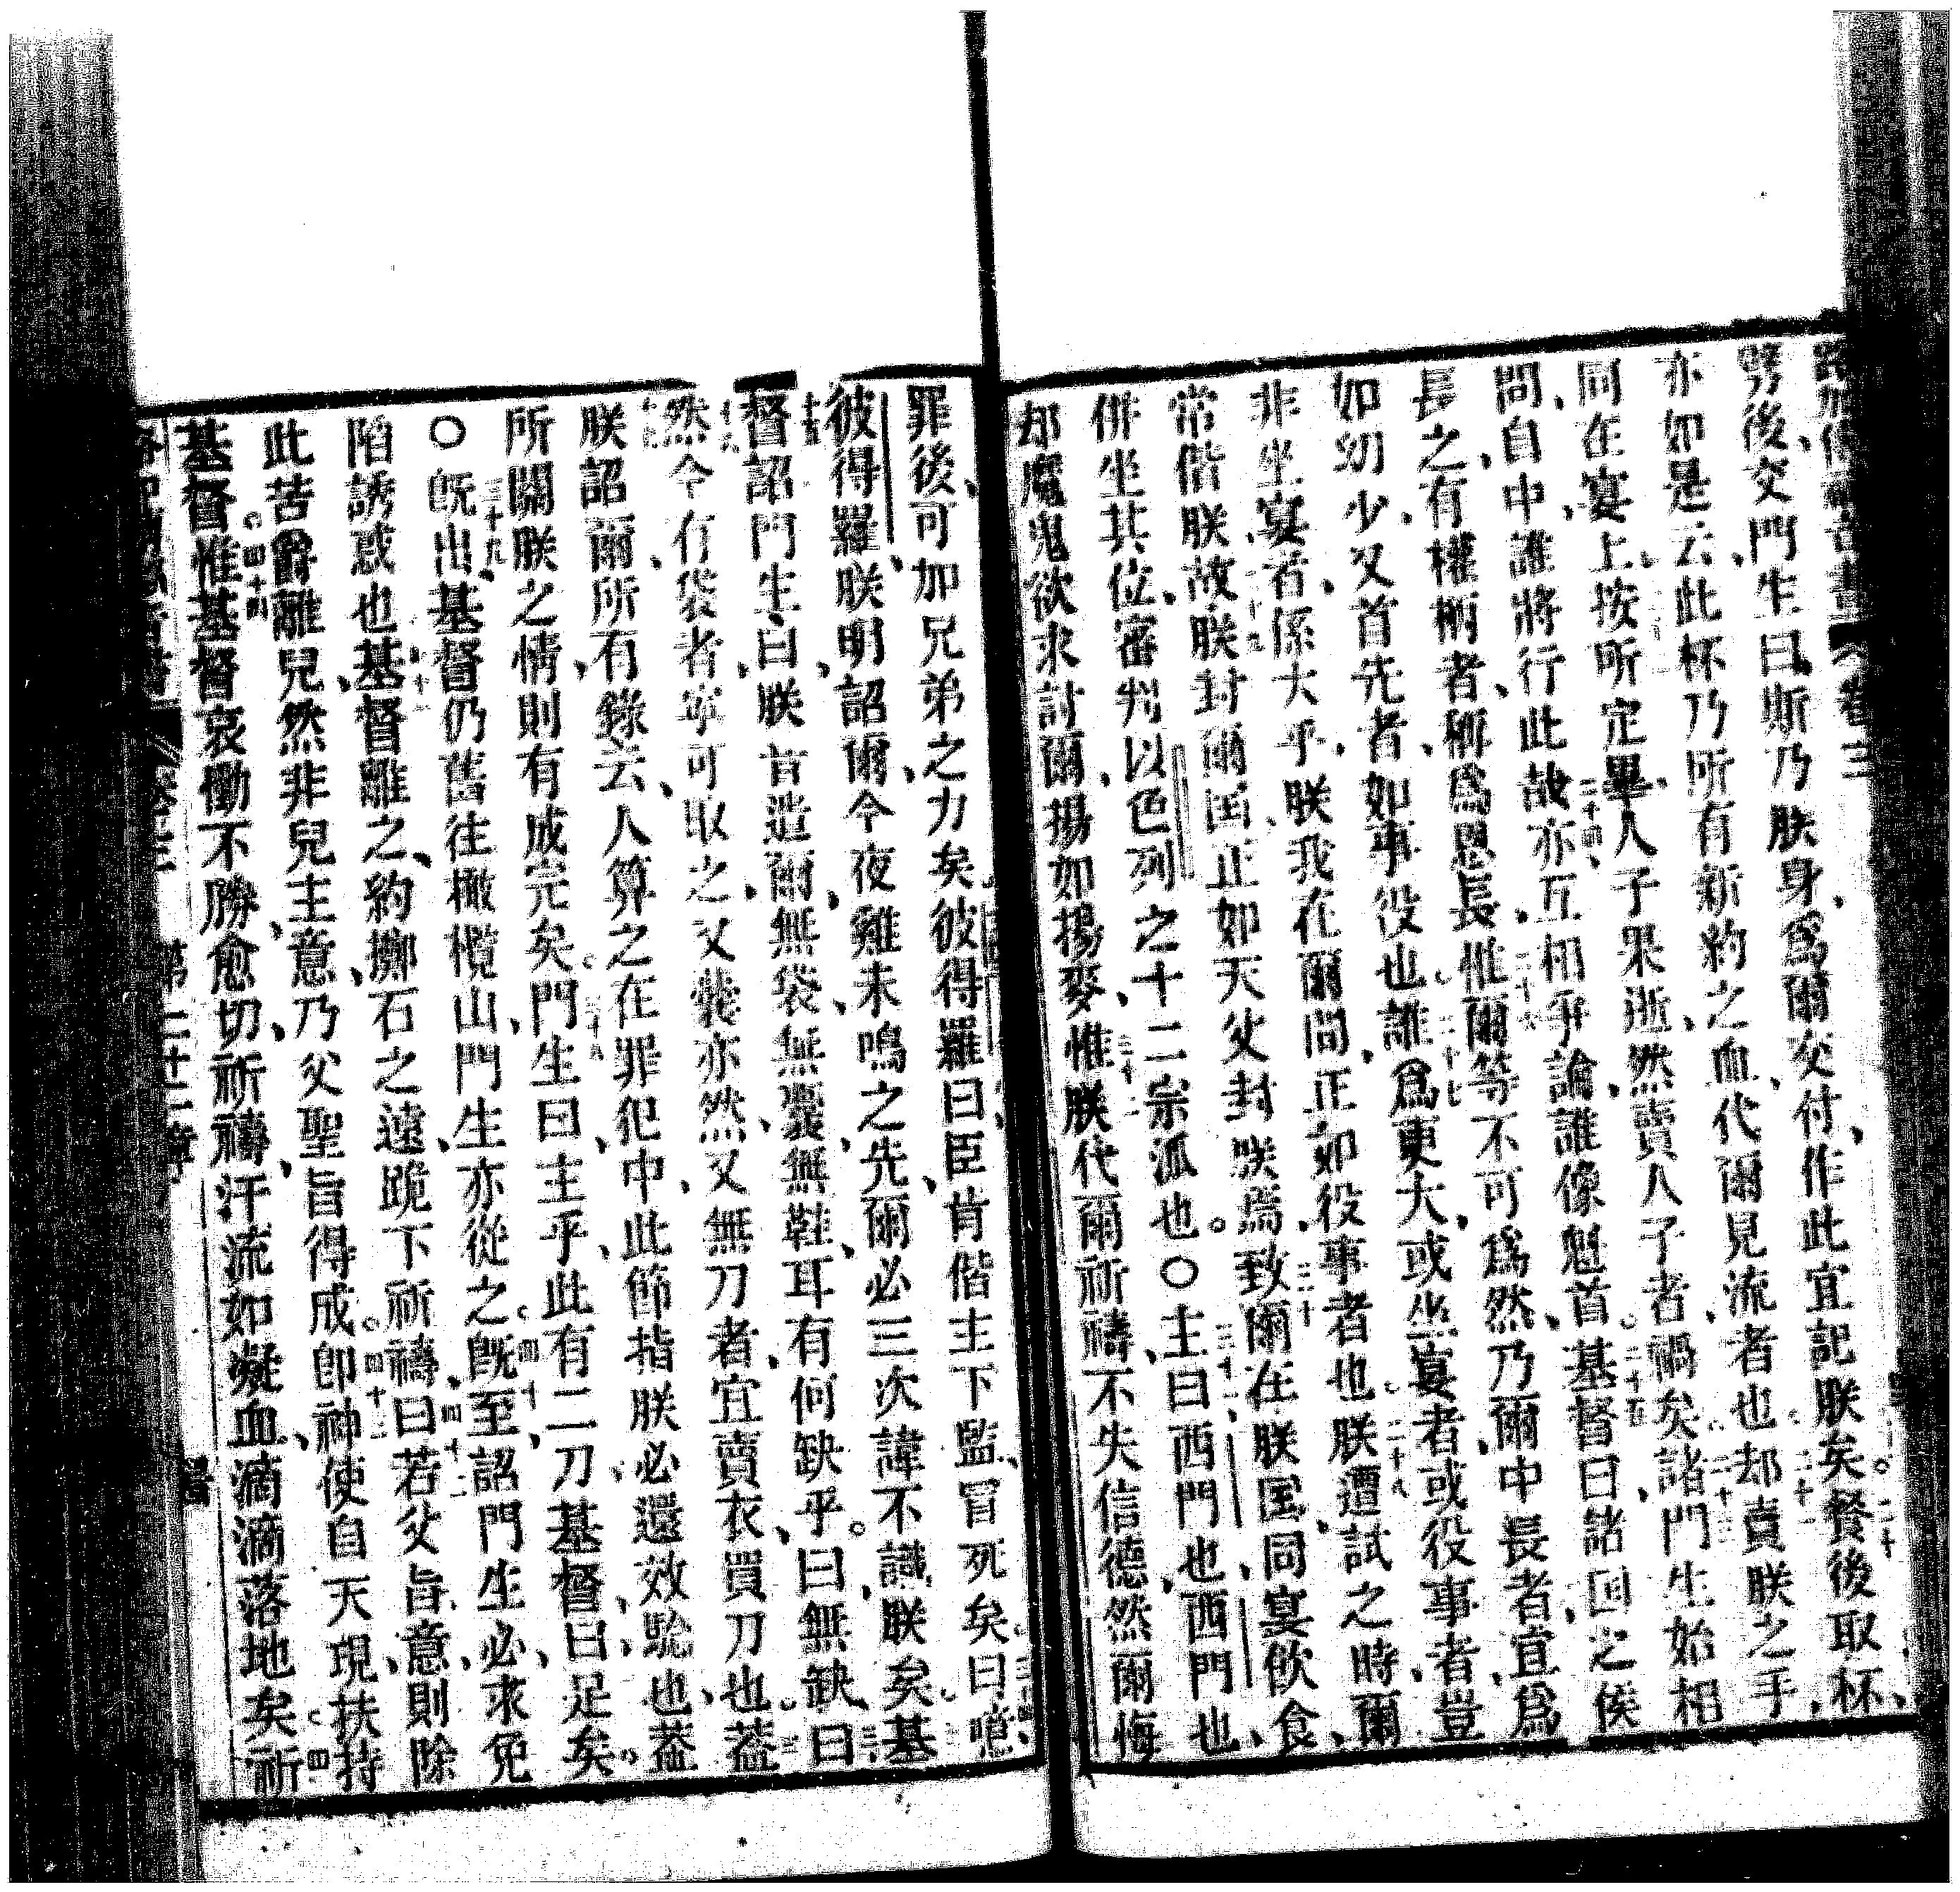 路加傳福音書 卷三
劈後、交門生曰、斯乃朕身、爲爾交付、作此宜記朕矣。二十餐後取杯、
亦如是云、此杯乃所有新約之血、代爾見流者也。二十一却賣朕之手、
同在宴上、按所定畢、人子果逝、然賣人子者、禍矣。二十三諸門生始相
問、自中誰將行此故。二十四、亦互相爭論、誰像魁首。二十五基督曰、諸囯之侯
長之、有權柄者、稱爲恩長。二十六惟爾等不可爲然、乃爾中長者、宜爲
如幼少、又首先者、如事役也。二十七誰爲更大、或坐宴者或役事者、豈
非坐宴者、係大乎、朕我在爾間、正如役事者也。二十八朕遭試之時、爾
常偕朕、故二十九朕封爾囯、正如天父封朕焉、三十致爾在朕囯、同宴飲食、
俳坐其位、審判以色列之十二宗派也。〇三十一主曰、西門也、西門也、
却魔鬼欲求討爾、揚如揚麥、三十二惟朕代爾祈禱、不失信德、然爾悔
罪後、可加兄弟之力矣。彼得羅曰、臣肯偕主下監、冒死矣。三十四曰、噫、
彼得羅、朕明詔爾、今夜雞未鳴之先、爾必三次諱不識朕矣。三十五基
督詔門生曰、朕昔遣爾、無袋、無囊、無鞋、耳有何缺乎。曰、無缺、三十六曰、
然今有袋者、寧可取之、又囊亦然、又無刀者、宜賣衣、買刀也。三十七葢
朕詔爾、所有錄云、人算之在罪犯中、此節指朕、必還效騐也、葢
所關朕之情、則有成完矣。三十八門生曰、主乎、此有二刀、基督曰、足矣。
〇三十九旣出、基督仍舊往橄欖山、門生亦從之。四十旣至、詔門生、必求免
陷誘惑也、四十一基督離之、約擲石之遠、跪下祈禱、四十二曰、若父旨意、則除
此苦爵離兒、然非兒主意、乃父聖旨得成。四十三卽神使自天現、扶持
基督。四十四惟基督哀慟不勝、愈切祈禱、汗流如凝血、滴滴落地矣。四十五祈
卷三 第二十二章